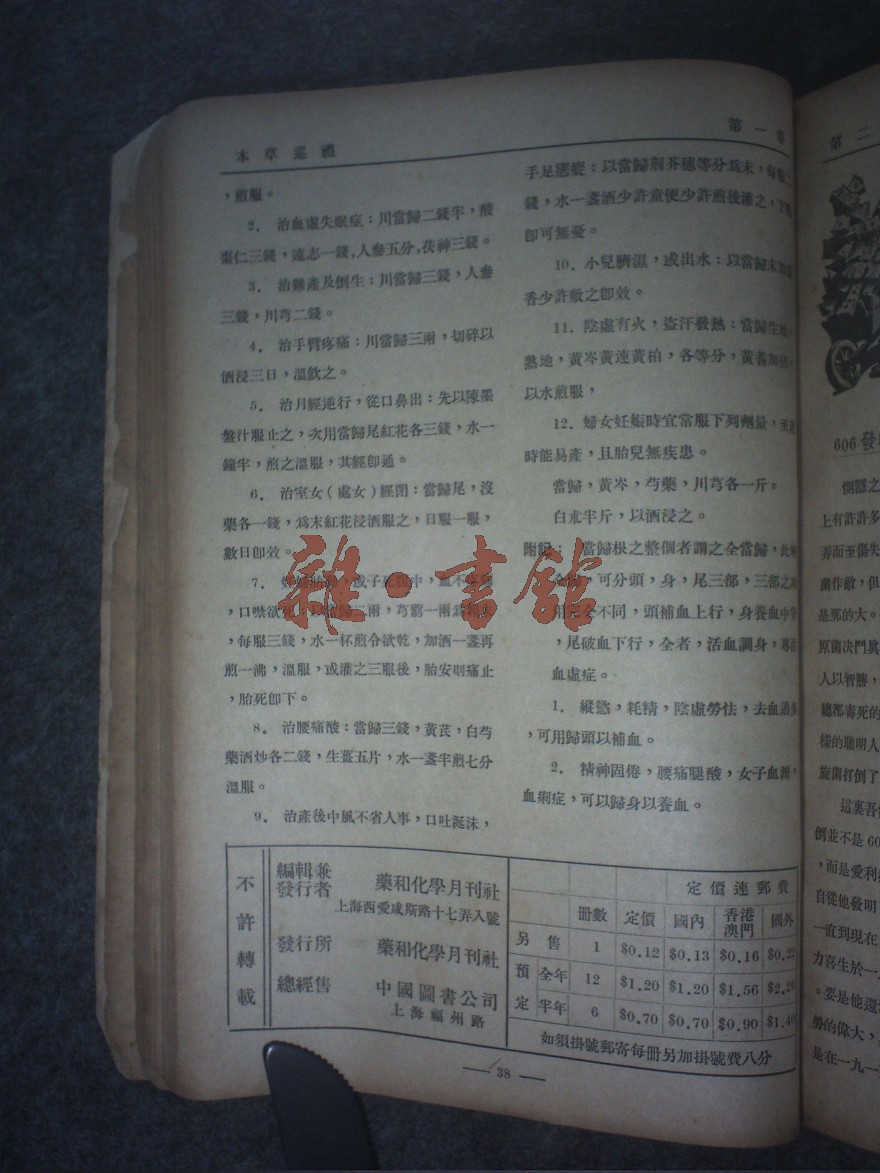 本草巡禮
第一
，煎服。
2．治血虛失眠症：川當歸二錢半，酸
棗仁三錢，遠志一錢，人參五分，茯神三錢。
3．治難產及倒生：川當歸三錢，人參
三錢，川芎二錢。
4．治手臂疼痛：川當歸三兩，切碎以
酒浸三日，溫飲之。
5．治月經逆行，從口鼻出：先以陳墨
盤汁服止之，次用當歸尾紅花各三錢，水一
鐘半，煎之溫服，其經卽通。
6．治室女（處女）經閉：當歸尾，沒
藥各一錢，爲末紅花浸酒服之，日服一服，
數日卽效。
7．胎動，或子死腹中，血不
，口噤欲死：以當歸二兩，芎藭一兩爲粗末
，每服三錢，水一杯煎令欲乾，加酒一盞再
煎一沸，溫服，或灌之三服後，胎安則痛止
，胎死卽下。
8．治腰痛酸：當歸三錢，黃芪，白芍
藥酒炒各二錢，生薑五片，水一盞半煎七分
溫服。
9．治產後中風不省人事，口吐涎沫，
手足瘛瘲：以當歸荆芥穗等分爲末，每服
錢，水一盞酒少許童便少許煎後灌之，下
卽可無憂。
10．小兒臍濕，或出水：以當歸末加
香少許敷之卽效。
11．陰虛有火，盜汗發熱：當歸生地，
熟地，黃岑黃連黃柏，各等分，黃耆加倍，
以水煎服，
12．婦女妊娠時宜常服下列劑量，至產
時能易產，且胎兒無疾患。
當歸，黃岑，芍藥，川芎各一斤。
白朮半斤，以酒浸之。
附記：當歸根之整個者謂之全當歸，此
，可分頭，身，尾三部，三部之
用完全不同，頭補血上行，身養血中
，尾破血下行，全者，活血調身，專
血虛症。
1．縱慾，耗精，陰虛勞怯，去血過多
，可用歸頭以補血。
2．精神固倦，腰痛腿酸，女子血
血痢症，可以歸身以養血。
不許轉載
編輯兼發行者 藥和化學月刊社
上海西愛咸斯路十七弄八號
發行所 藥和化學月刊社
總經售 中國圖書公司
上海福州路
定價連郵費
冊數 定價 國內 香港澳門 國外
另售 1 $0.12 $0.13 $0.16 $0.22
預定 全年 12 $1.20 $1.20 $1.56 $2.20
半年 6 $0.70 $0.70 $0.90 $1.40
如須掛號郵寄每冊另加掛號費八分
38
雜·書館
第二
606發
惻隱之
上有許許多
弄而至傷失
菌作敵，但
是那的大。
原菌決鬥眞
人以智勝，
總那毒死的
樣的聰明人
旋菌打倒了
這裏吾
倒並不是60
，而是愛利
自從他發明
一直到現在
力喜生於一
。要是他還
勞的偉大，
是在一九一